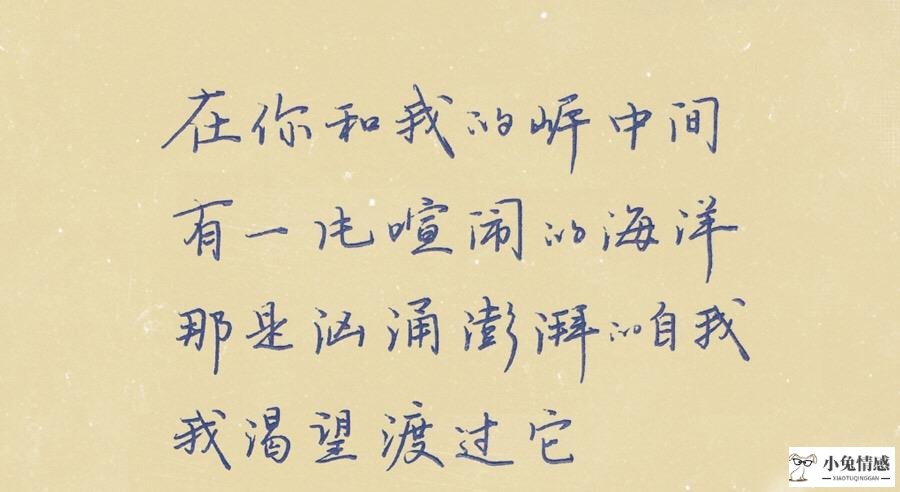 在你和我的岸中间
有一片喧闹的海洋
那是汹涌澎湃的自我
我渴望渡过它
小兔情感
XIAOTUQINGGAN